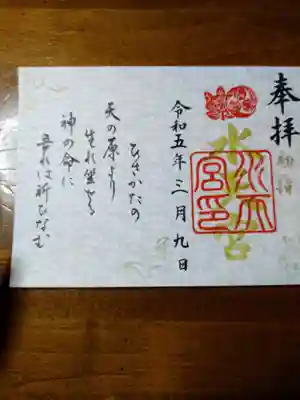 奉拝
水天宮
水天宮印
令和五年三月九日
ひさかたの
天の原より
生れ坐せる
神の命に
吾れは祈ひなむ